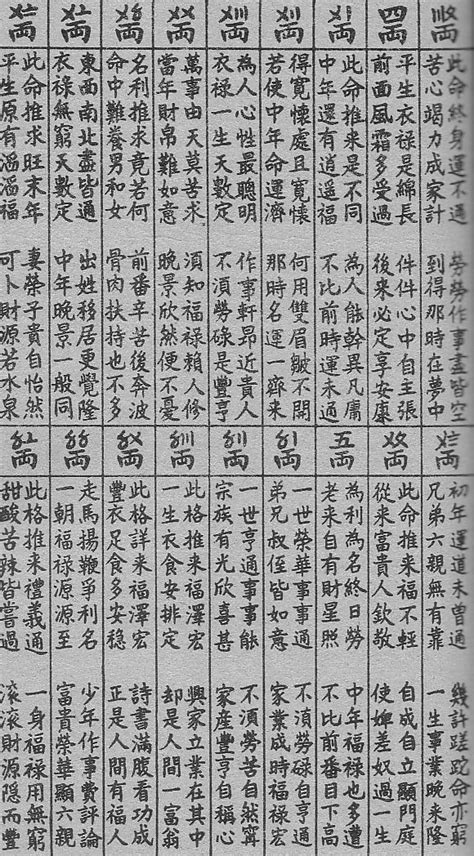 〣〩両
此命終身運不通 勞勞作事盡皆空
苦心竭力成家計 到得那時在夢中
四両
平生衣祿是綿長 件件心中自主張
前面風霜多受過 後来必定享安康
〤〡両
此命推来是不同 為人能幹異凡庸
中年還有逍遥福 不比前時運未通
〤〢両
得寬懷處且寬懷 何用雙眉皺不開
若使中年命運濟 那時名運一齊来
〤〣両
為人心性最聰明 作事軒昂近貴人
衣祿一生天數定 不須勞碌是豐亨
〤〤両
萬事由天莫苦求 須知福祿賴人修
當年財帛難如意 晚景欣然便不憂
〤〥両
名利推求竟若何 前番辛苦後奔波
命中難養男和女 骨肉扶持也不多
〤〦両
東西南北盡皆通 出姓移居更覺隆
衣祿無窮天數定 中年晚景一般同
〤〧両
此命推求旺末年 妻榮子貴自怡然
平生源有滔滔福 可卜財源若水泉
〤〨両
初年運道未曾通 幾許蹉跎命亦窮
兄弟六親無有靠 一生事業晚来隆
〤〩両
此命推来福不輕 自成自立顯門庭
從来富貴人欽敬 使婢差奴過一生
五両
為利為名終日勞 中年福祿也多遭
老来自有財星照 不比前番目下高
〥〡両
一世榮華事事通 不須勞碌自亨通
弟兄叔侄皆如意 家業成時福祿宏
〥〢両
一世亨通事事能 不須勞苦自然寗
宗族有光欣喜甚 家產豐亨自稱心
〥〣両
此格推来福澤宏 興家立業在其中
一生衣食安排定 却是人間一富翁
〥〤両
此格詳来福澤宏 詩書滿腹看功成
豐衣足食多安穩 正是人間有福人
〥〥両
走馬揚鞭爭利名 少年作事費評論
一朝福祿源源至 富貴榮華顯六親
〥〦両
此格推来禮義通 一身福祿用無窮
甜酸苦辣皆嘗過 滾滾財源隱而豐